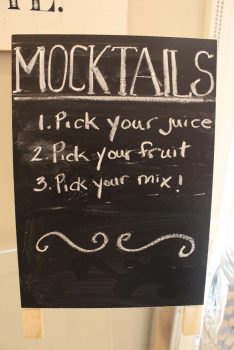 MOCKTAILS
1. Pick your juice
2. Pick your fruit
3. Pick your mix!